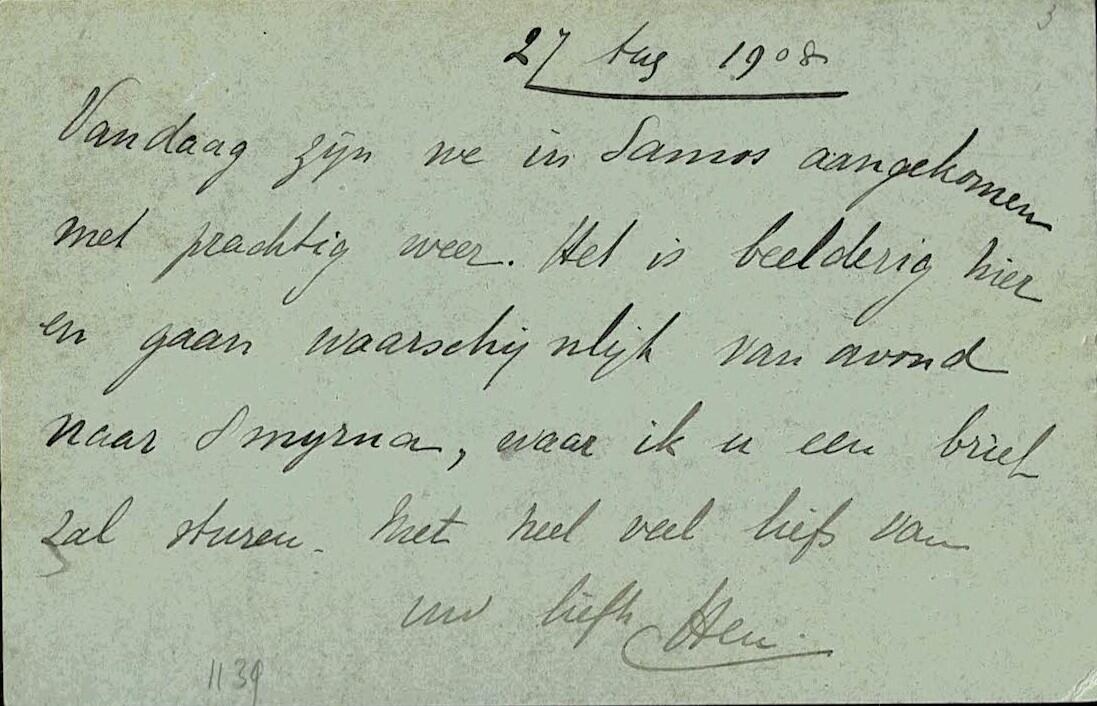 3
27 Aug 1908
Vandaag zijn we in Samos aangekomen
met prachtig weer. Het is beelderig hier
en gaan waarschijnlijk van avond
naar Smyrna, waar ik u een brief
zal sturen. Met heel veel liefs van
uw liefh Hen.
1139